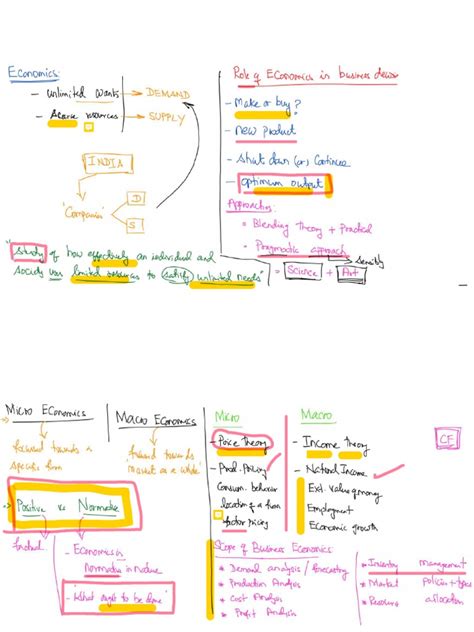 Economics:
- unlimited wants → DEMAND
- Scarce resources → SUPPLY
INDIA
"Companies"
D
S
"Study of how effectively an individual and
society uses limited resources to satisfy unlimited needs"
Role of Economics in business
- Make or buy?
- new product
- Shut down (or) Continue
- optimum output
Approaches:
• Blending theory + Practical
• Pragmatic approach
= Science + Art
Micro Economics
focused towards a
specific firm
Macro Economics
towards
market as a whole"
Positive vs Normative
factual
- Economics is
Normative in nature
- "What ought to be done"
Micro
- Price Theory
- Prod. Pricing
Consum. behavior
location of a firm
factor pricing
Macro
- Income theory
- National Income
Ext. value of money
Employment
Economic growth
CF
Scope of Business Economics:
* Demand analysis / forecasting
* Production Analysis
* Cost Analysis
* Profit Analysis
* Inventory management
* Market Policies + types
* Resource allocation